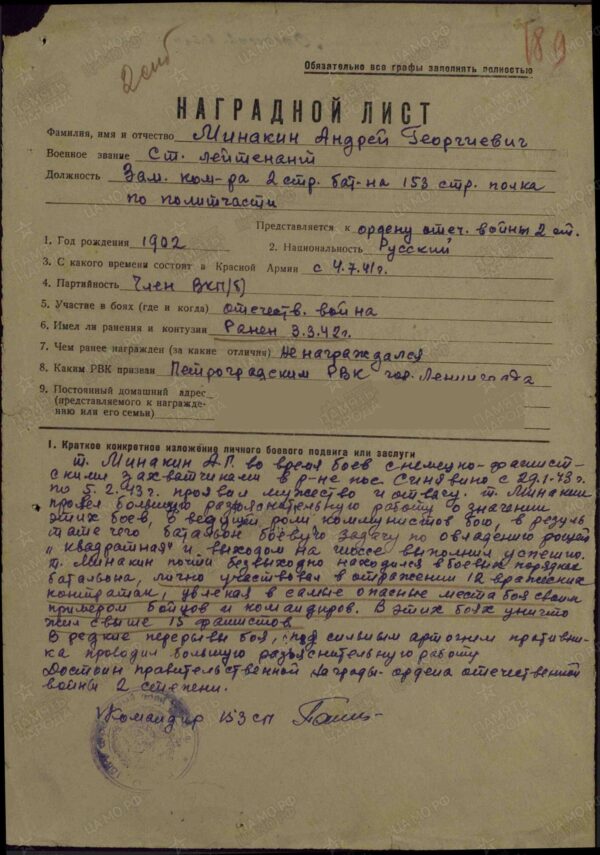 189
Обязательно все графы заполнять полностью
НАГРАДНОЙ ЛИСТ
Фамилия, имя и отчество Минакин Андрей Георгиевич
Военное звание Ст. лейтенант
Должность Зам. ком-ра 2 стр. бат-на 153 стр. полка
по политчасти
Представляется к ордену отеч. войны 2 ст.
1. Год рождения 1902 2. Национальность Русский
3. С какого времени состоит в Красной Армии с 4.7.41г.
4. Партийность Член ВКП/б/
5. Участие в боях (где и когда) отечеств. война
6. Имел ли ранения и контузии Ранен 3.3.42г.
7. Чем ранее награжден (за какие отличия) не награждался
8. Каким РВК призван Петроградским РВК гор. Ленинграда
9. Постоянный домашний адрес
(представляемого к награжде-
нию или его семьи)
I. Краткое конкретное изложение личного боевого подвига или заслуги
т. Минакин А.Г. во время боев с немецко-фашист-
скими захватчиками в р-не пос. Синявино с 29.1.43г.
по 5.2.43г. проявил мужество и отвагу. т. Минакин
провел большую разъяснительную работу о значении
этих боев, о ведущей роли коммунистов в бою, в резуль
тате чего батальон боевую задачу по овладению рощей
„квадратная" и выходом на шоссе выполнил успешно.
т. Минакин почти безвыходно находился в боевых порядках
батальона, лично участвовал в отражении 12 вражеских
контратак, увлекая в самые опасные места боя своим
примером бойцов и командиров. В этих боях уничто
жил свыше 15 фашистов.
В редкие перерывы боя, под сильным артогнем противни-
ка проводил большую разъяснительную работу
Достоин правительственной награды - ордена отечественной
войны 2 степени.
Командир 153 сп